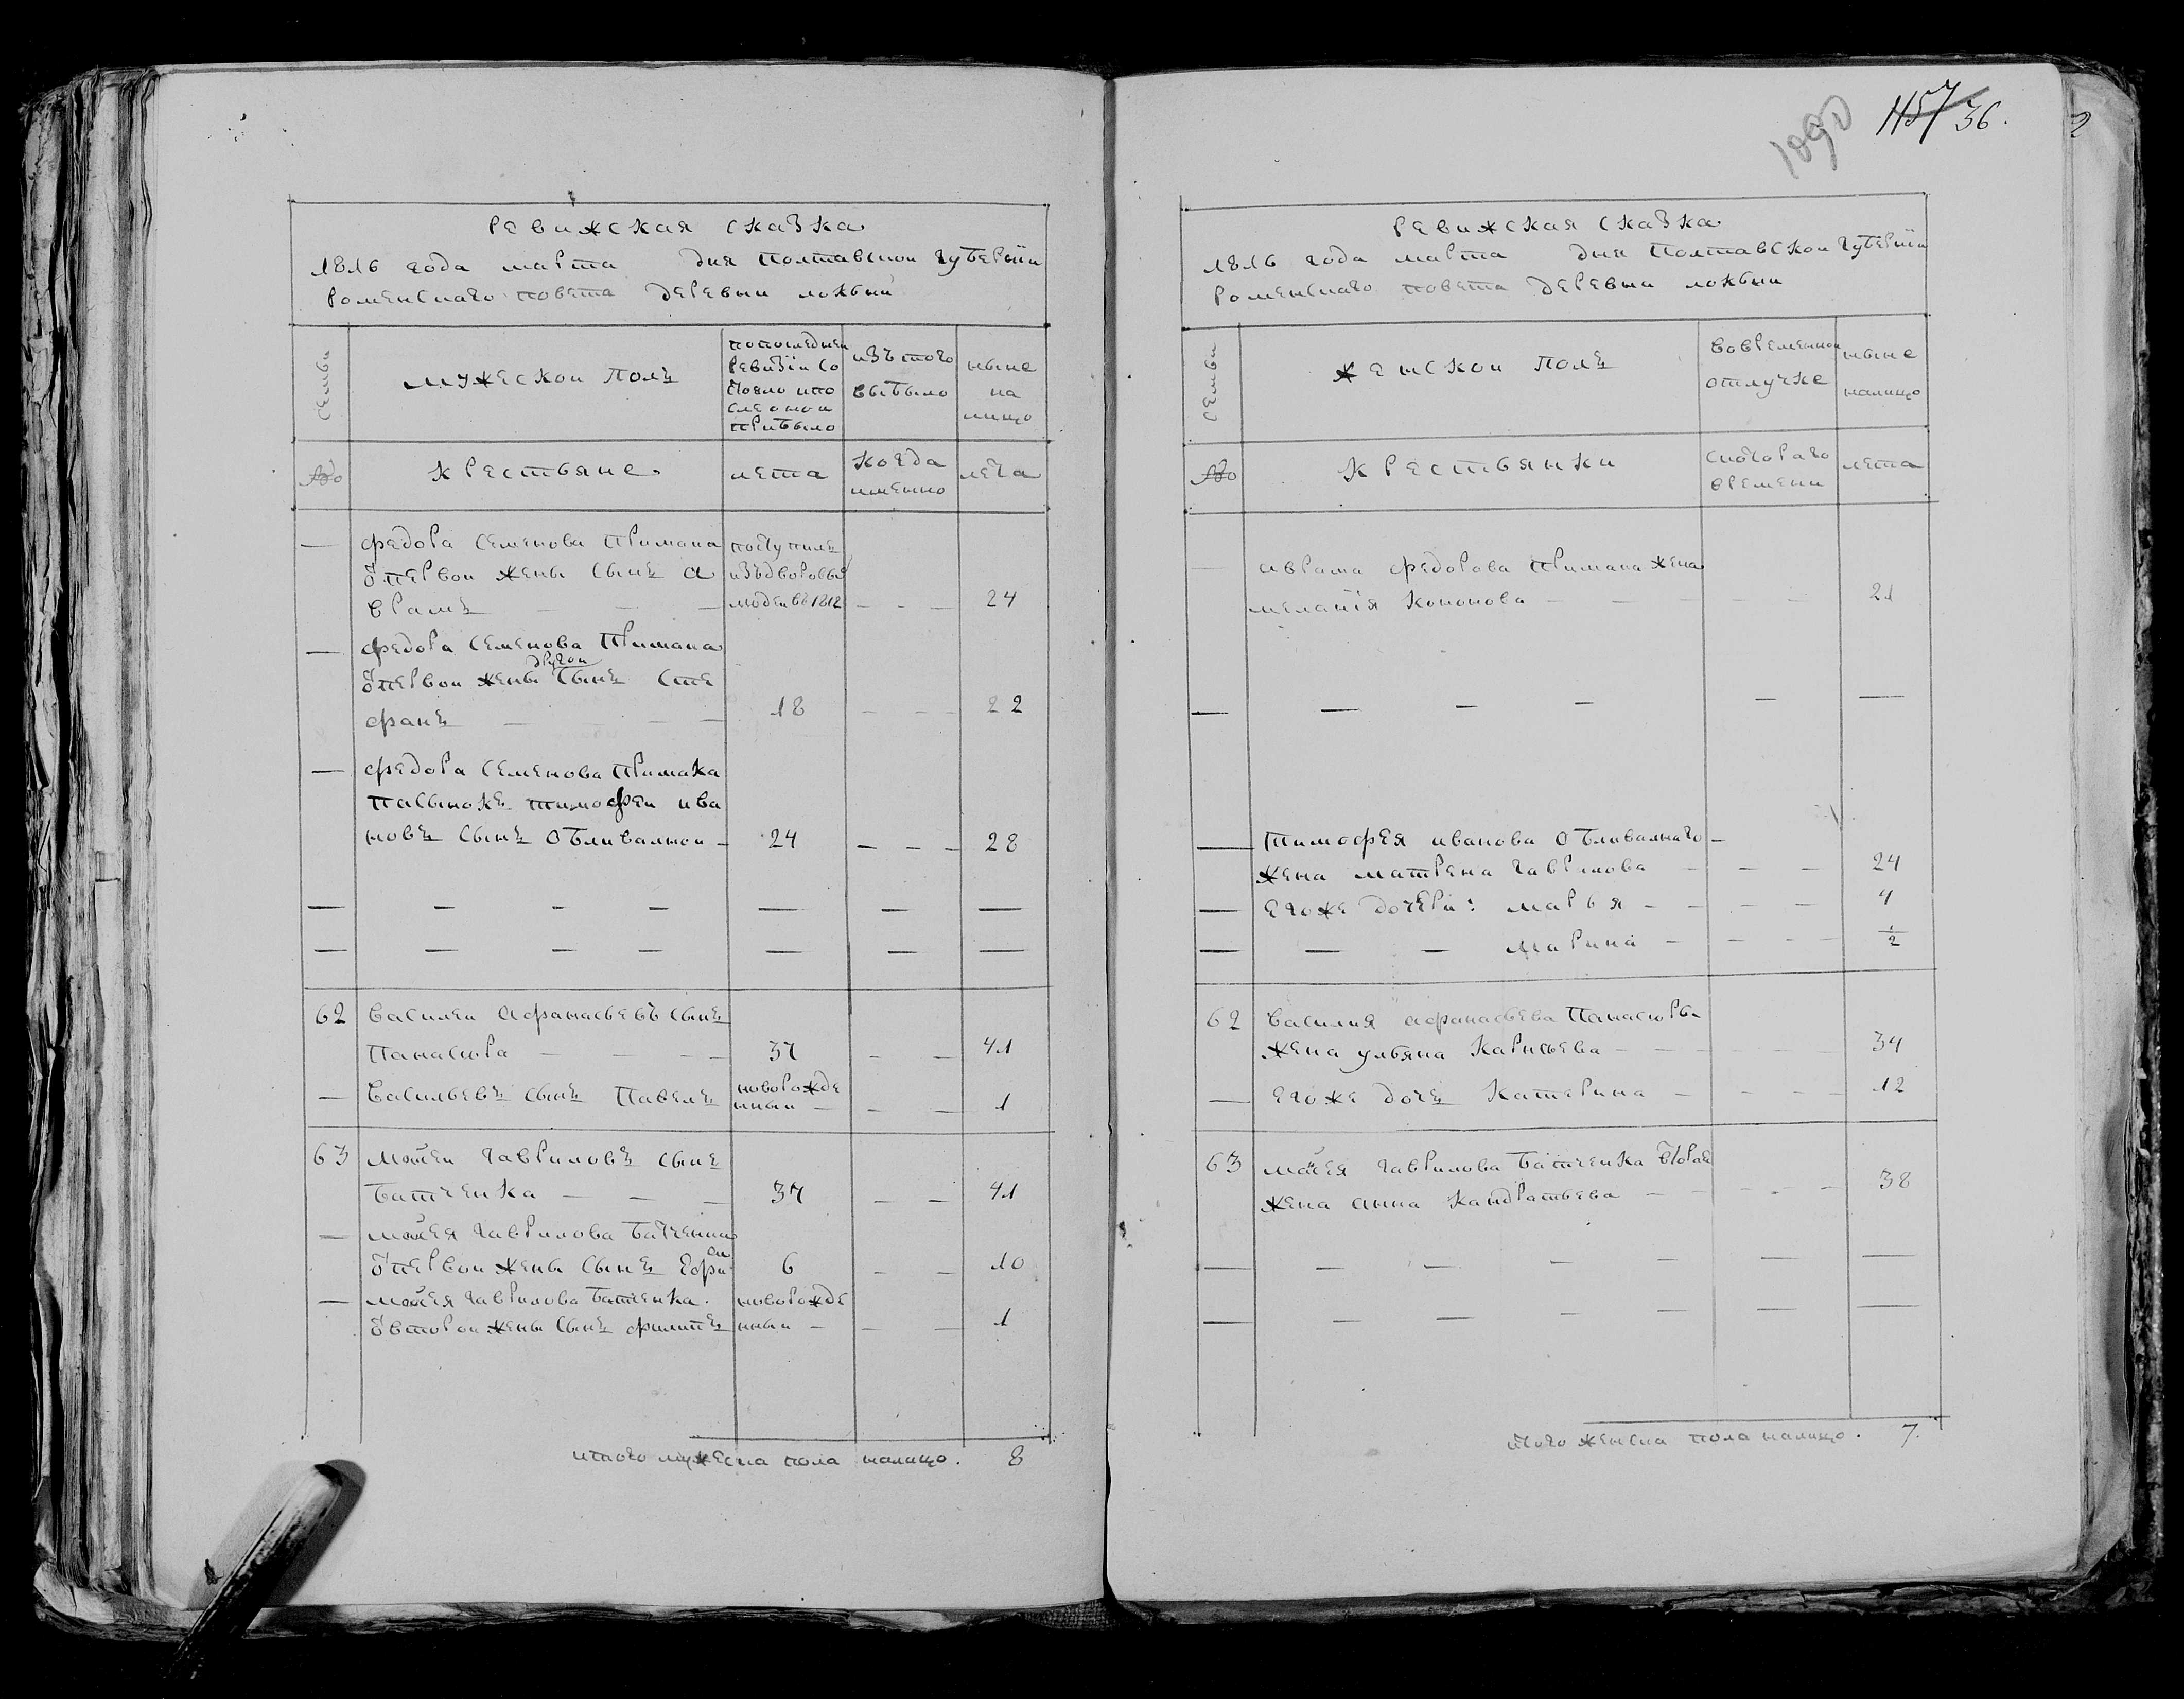 ревижская сказка
1816 года марта дня полтавской губернии
роменскаго повета деревни локъни
семьи
мужескои полъ
попоследнеи
ревизiи со
стояло ипо
сле онои
прибыло
изътого
выбыло
ныне
на
лицо
№
крестьяне
лета
когда
именно
лета
— федора семенова примака
ѿпервои жены сынъ а
врамъ — — —
поступилъ
24
— федора семенова примака
другои
ѿпервои жены сынъ сте
фанъ — — — 18 — — — 22
— федора семенова примака
пасынокъ тимофеи ива
новъ сынъ обливалнои — 24 — — — 28
— — — — — — —
— — — — — — —
62 василеи афанасьевъ сынъ
панасюра — — — — 37 — — 41
— васильевъ сынъ павелъ новорожде
нныи — — — 1
63 мосеи гавриловъ сынъ
батченка — — — 37 — — 41
— мосея гаврилова батченки
ѿпервои жены сынъ ефи 6 — — 10
— мосея гаврилова батченка новорожде
ѿвторои жены сынъ филипъ нныи — — — 1
итого мужеска пола налицо . 8
1090
1157 36.
2
ревижская сказка
1816 года марта дня полтавской губернiи
роменскаго повета деревни локъни
семьи
женскои полъ
вовременнои
отлучке
ныне
налицо
№
крестьянки
скотораго
времени
лета
— аврама федорова примака жена
меланiя кононова — — — — — 21
— — — — — —
— тимофея иванова обливалнаго —
жена матрена гаврилова — — — 24
— егоже дочери: марья — — — — 4
— — — марина — — — — 1/2
62 василия афанасьева панасюры
жена ульяна — — — — 34
— егоже дочъ катерина — — — — 12
63 мосея гаврилова батченка вторая
жена анна кандратьева — — — — — 38
— — — — — — —
— — — — — — —
итого женска пола налицо . 7.